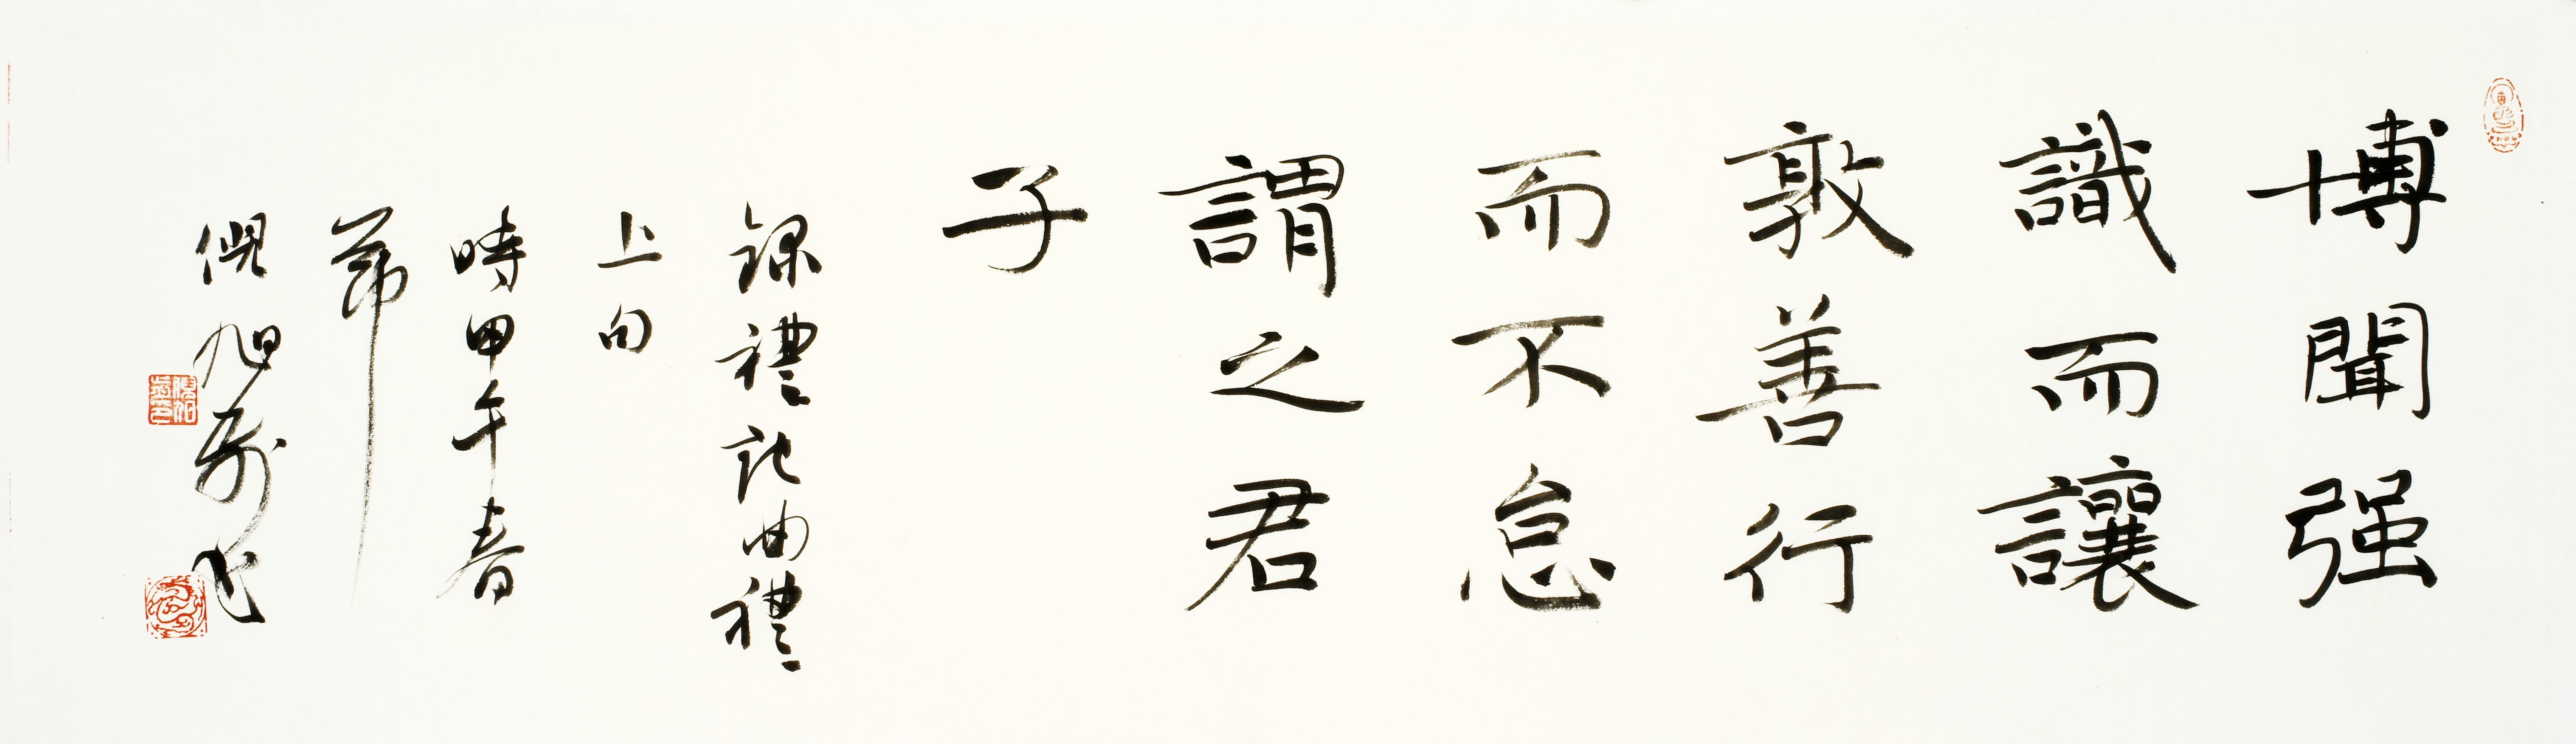 博聞强
識而讓
敦善行
而不怠
謂之君
子
録禮記曲禮
上句
時甲午春
節
倪旭